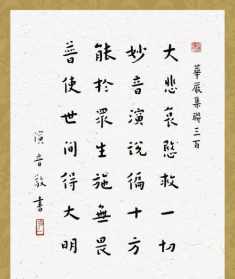 華嚴集聯三百
大悲哀愍救一切
妙音演說徧十方
能於眾生施無畏
普使世間得大明
演音敬書